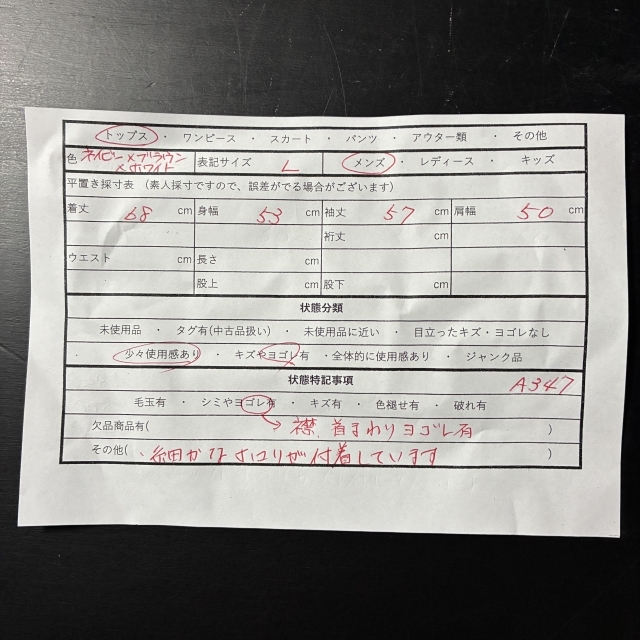 トップス ・ ワンピース ・ スカート ・ パンツ ・ アウター類 ・ その他
色 ネイビー×ブラウン×ホワイト 表記サイズ L メンズ ・ レディース ・ キッズ
平置き採寸表 (素人採寸ですので、誤差がでる場合がございます)
着丈 68 cm 身幅 53 cm 袖丈 57 cm 肩幅 50 cm
裄丈 cm
ウエスト cm 長さ cm
股上 cm 股下 cm
状態分類
未使用品 ・ タグ有(中古品扱い) ・ 未使用品に近い ・ 目立ったキズ・ヨゴレなし
・ 少々使用感あり ・ キズやヨゴレ有 ・全体的に使用感あり ・ ジャンク品
状態特記事項 A347
毛玉有 ・ シミやヨゴレ有 ・ キズ有 ・ 色褪せ有 ・ 破れ有
欠品商品有( 襟、首まわりヨゴレ有 )
その他( ・細かなホコリが付着しています )